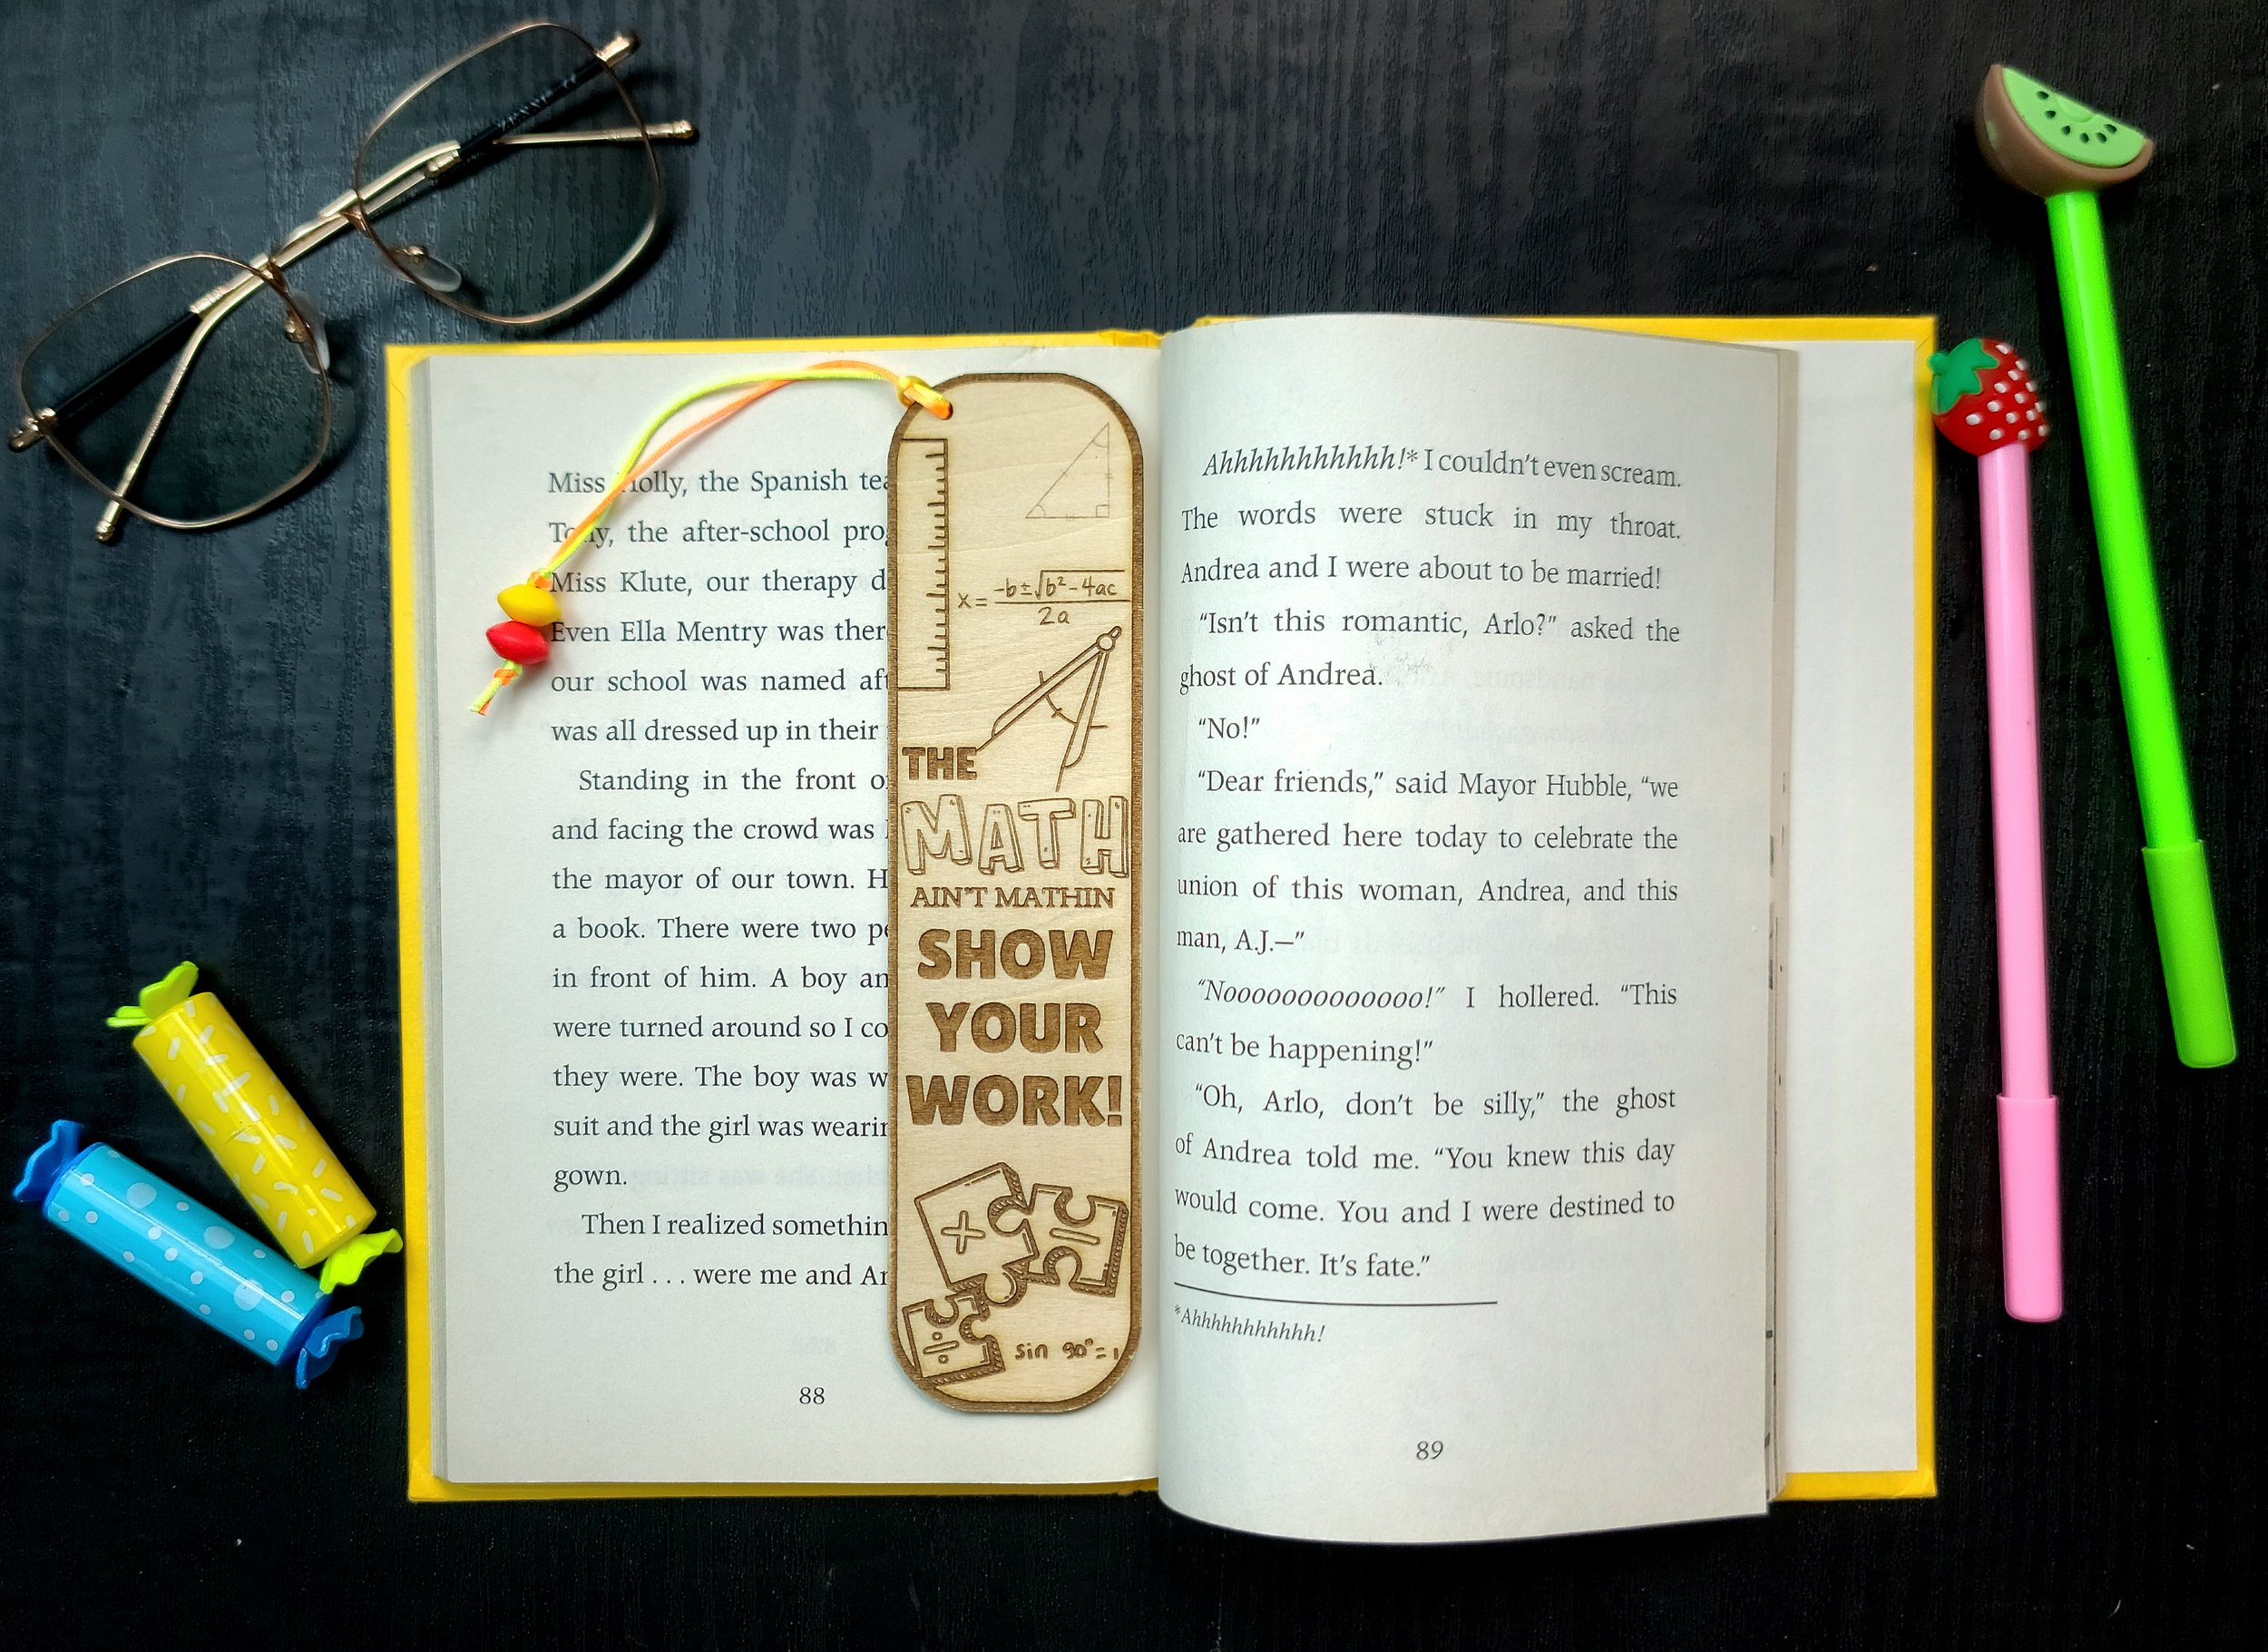 Miss Holly, the Spanish
the after-school
Miss Klute, our therapy
Even Ella Mentry was
our school was named
was all dressed up in their
Standing in the front
and facing the crowd was
the mayor of our town.
a book. There were two
in front of him. A boy
were turned around so I
they were. The boy was
suit and the girl was
gown.
Then I realized
the girl . . . were me and
88
x = -b±√b²-4ac
2a
THE
MATH
AIN'T MATHIN
SHOW
YOUR
WORK!
+
÷
÷
sin 90°=1
Ahhhhhhhhhhh!* I couldn't even scream.
The words were stuck in my throat.
Andrea and I were about to be married!
“Isn't this romantic, Arlo?” asked the
ghost of Andrea.
“No!”
“Dear friends,” said Mayor Hubble, “we
are gathered here today to celebrate the
union of this woman, Andrea, and this
man, A.J.—”
“Noooooooooooooo!” I hollered. “This
can't be happening!”
“Oh, Arlo, don't be silly,” the ghost
of Andrea told me. “You knew this day
would come. You and I were destined to
be together. It's fate.”
*Ahhhhhhhhhhh!
89